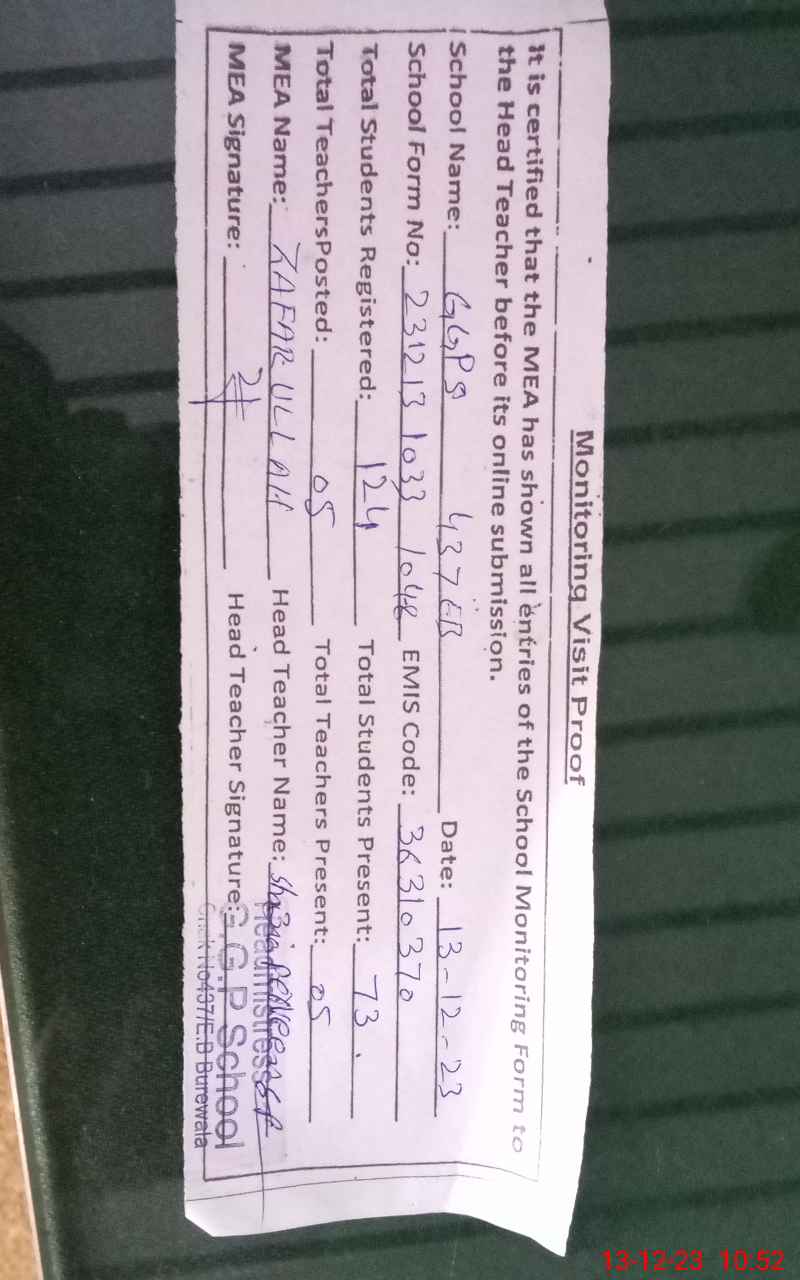 Monitoring Visit Proof
It is certified that the MEA has shown all entries of the School Monitoring Form to
the Head Teacher before its online submission.
School Name: GGPS 437 EB Date: 13-12-23
School Form No: 231213 1033 1048 EMIS Code: 36310370
Total Students Registered: 124 Total Students Present: 73
Total TeachersPosted: 05 Total Teachers Present: 05
MEA Name: ZAFAR ULLAH Head Teacher Name:
Headmistress
MEA Signature: Head Teacher Signature:
G.G.P School
Chak No437/E.B Burewala
13-12-23 10:52